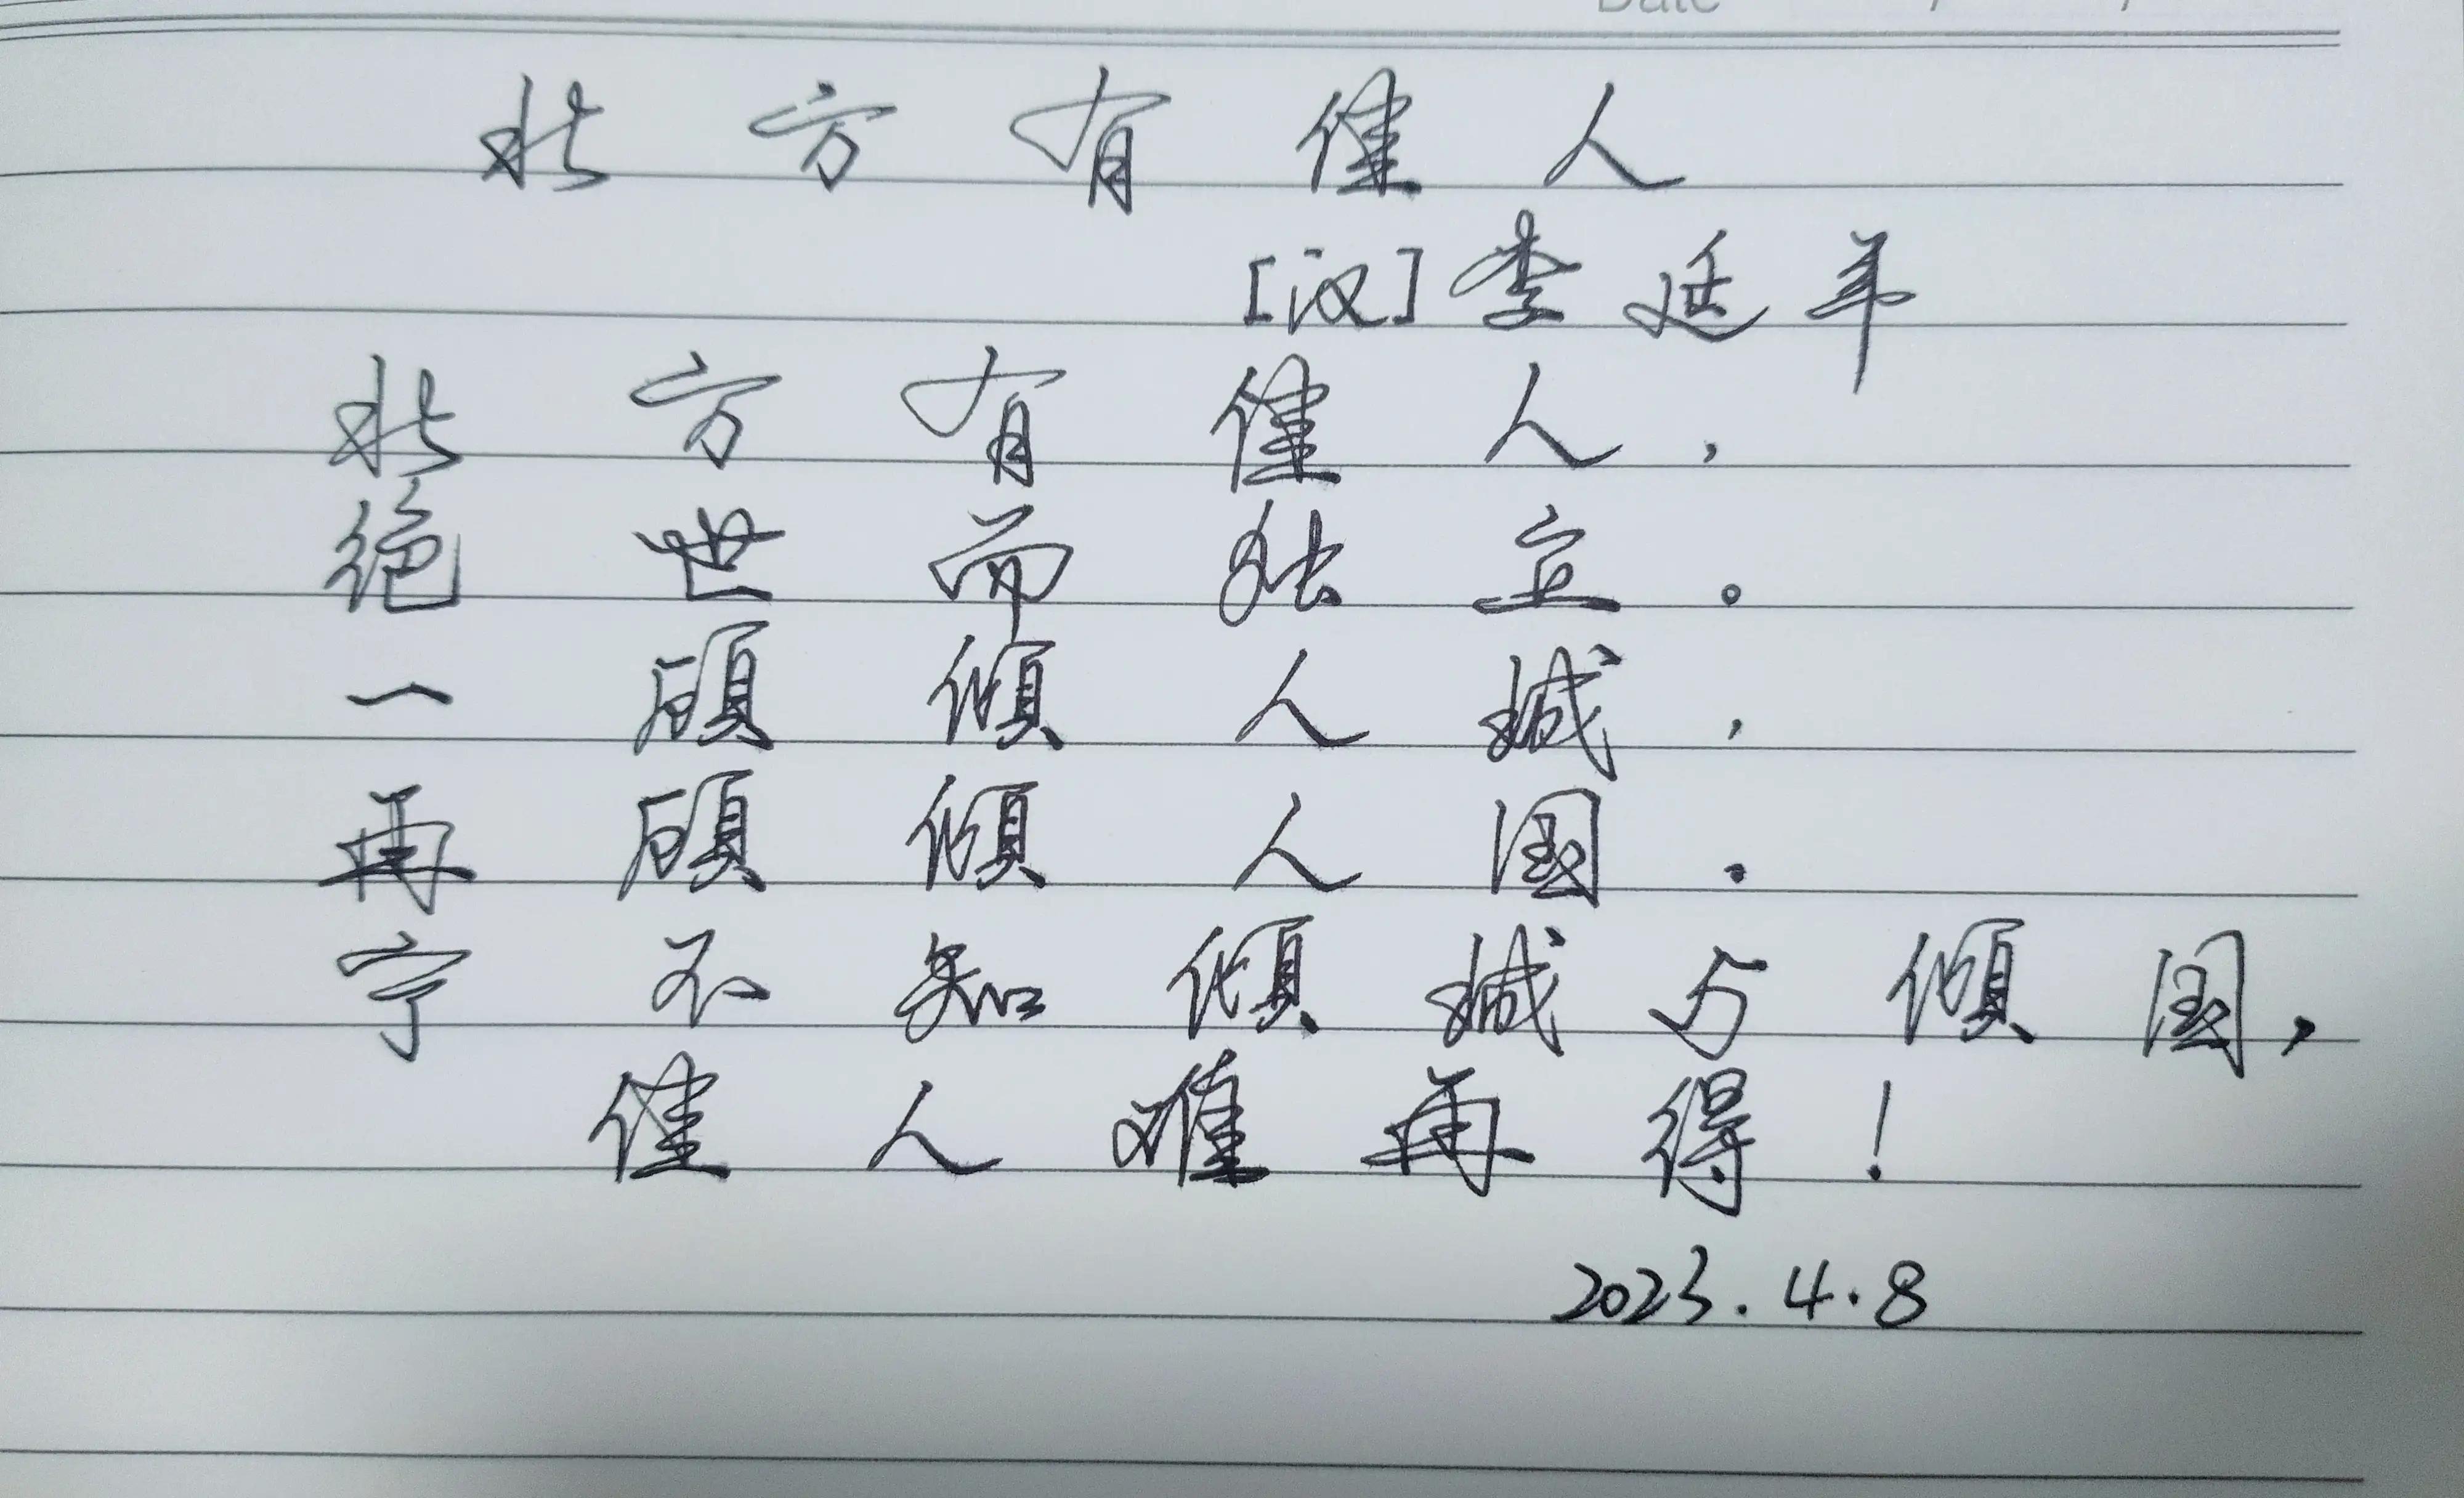 Date / /
北方有佳人
[汉]李延年
北方有佳人,
绝世而独立。
一顾倾人城,
再顾倾人国.
宁不知倾城与倾国,
佳人难再得!
2023.4.8